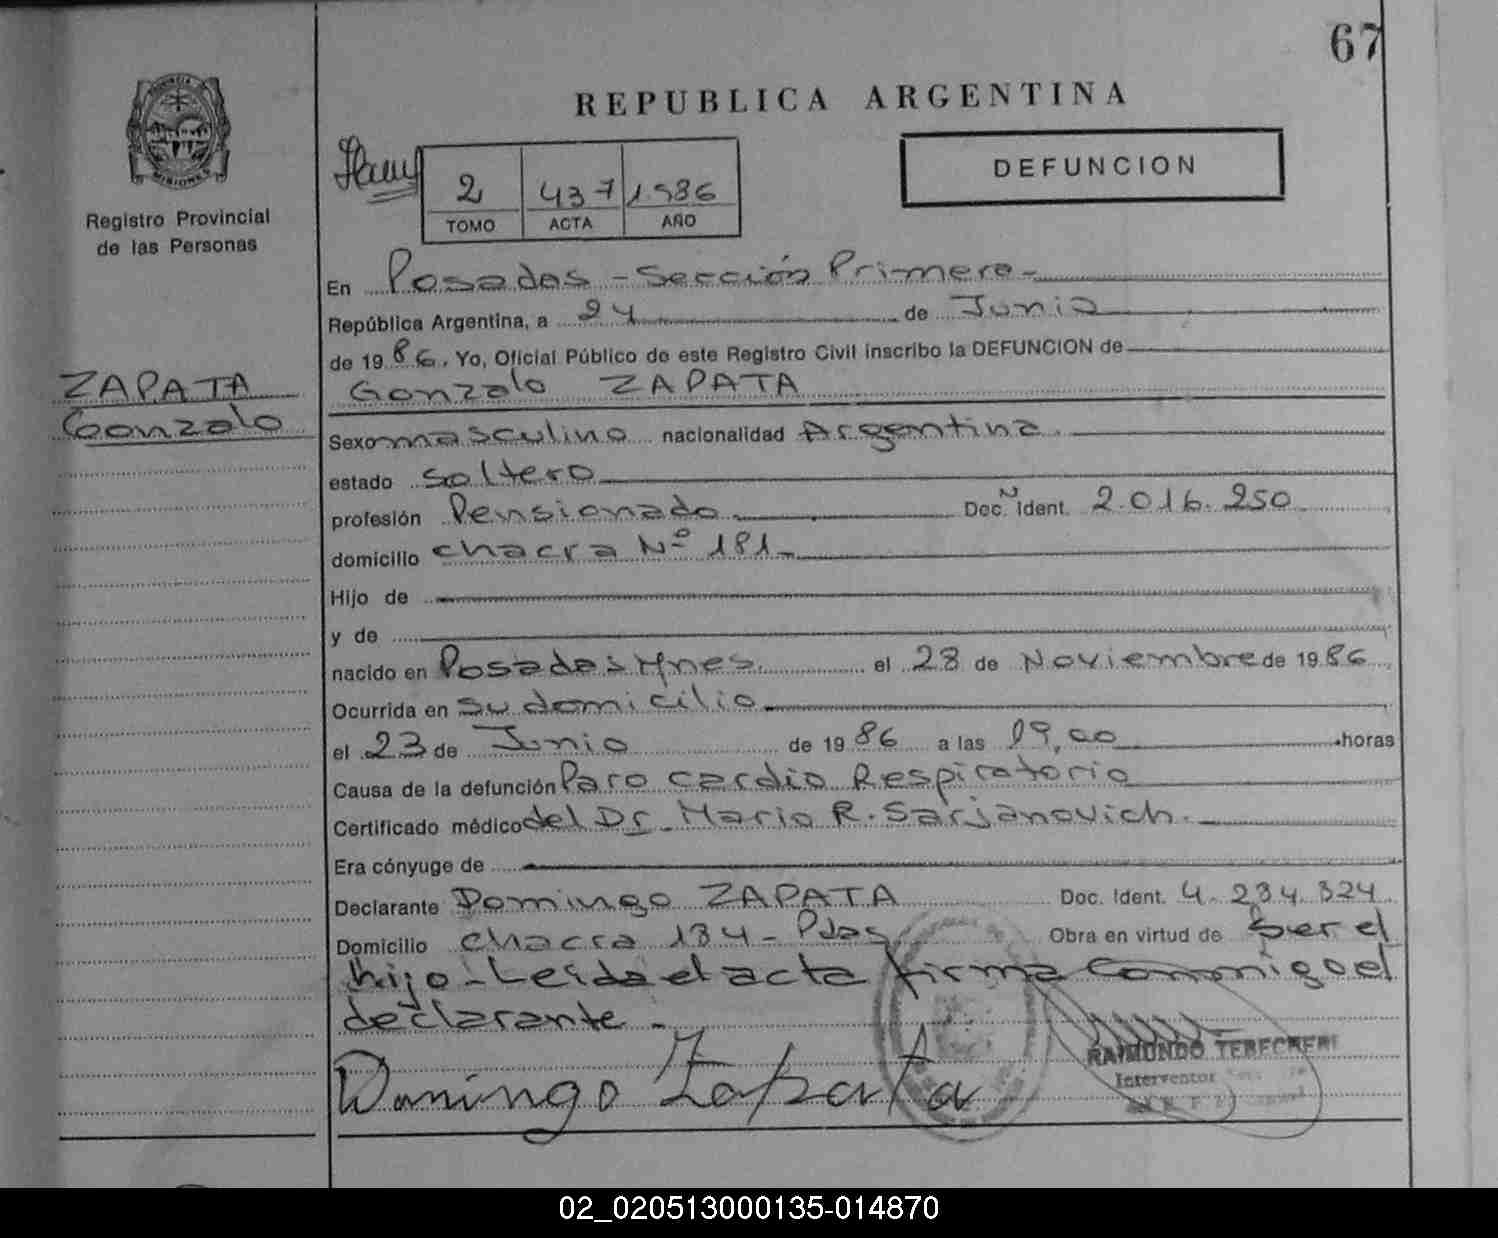 67
REPUBLICA ARGENTINA
PROVINCIA
MISIONES
Registro Provincial
de las Personas
DEFUNCION
2 437 1.986
TOMO ACTA AÑO
En Posadas - Sección Primera -
República Argentina, a 24 de Junio
de 1986. Yo, Oficial Público de este Registro Civil inscribo la DEFUNCION de
ZAPATA
Gonzalo
Gonzalo ZAPATA
Sexo masculino nacionalidad Argentina.
estado soltero
profesión Pensionado Doc. Nº Ident. 2.016.250
domicilio chacra Nº 181-
Hijo de
y de
nacido en Posadas Mnes. el 28 de Noviembre de 1986
Ocurrida en su domicilio
el 23 de Junio de 1986 a las 19,00 horas
Causa de la defunción Paro cardio Respiratorio
Certificado médico del Dr. Mario R. Sarjanovich.
Era cónyuge de
Declarante Domingo ZAPATA Doc. Ident. 4.234.324
Domicilio chacra 134 - Pdas Obra en virtud de ser el
hijo - Leida el acta firma conmigo el
declarante -
Domingo Zapata
RAIMUNDO
Interventor
02_020513000135-014870